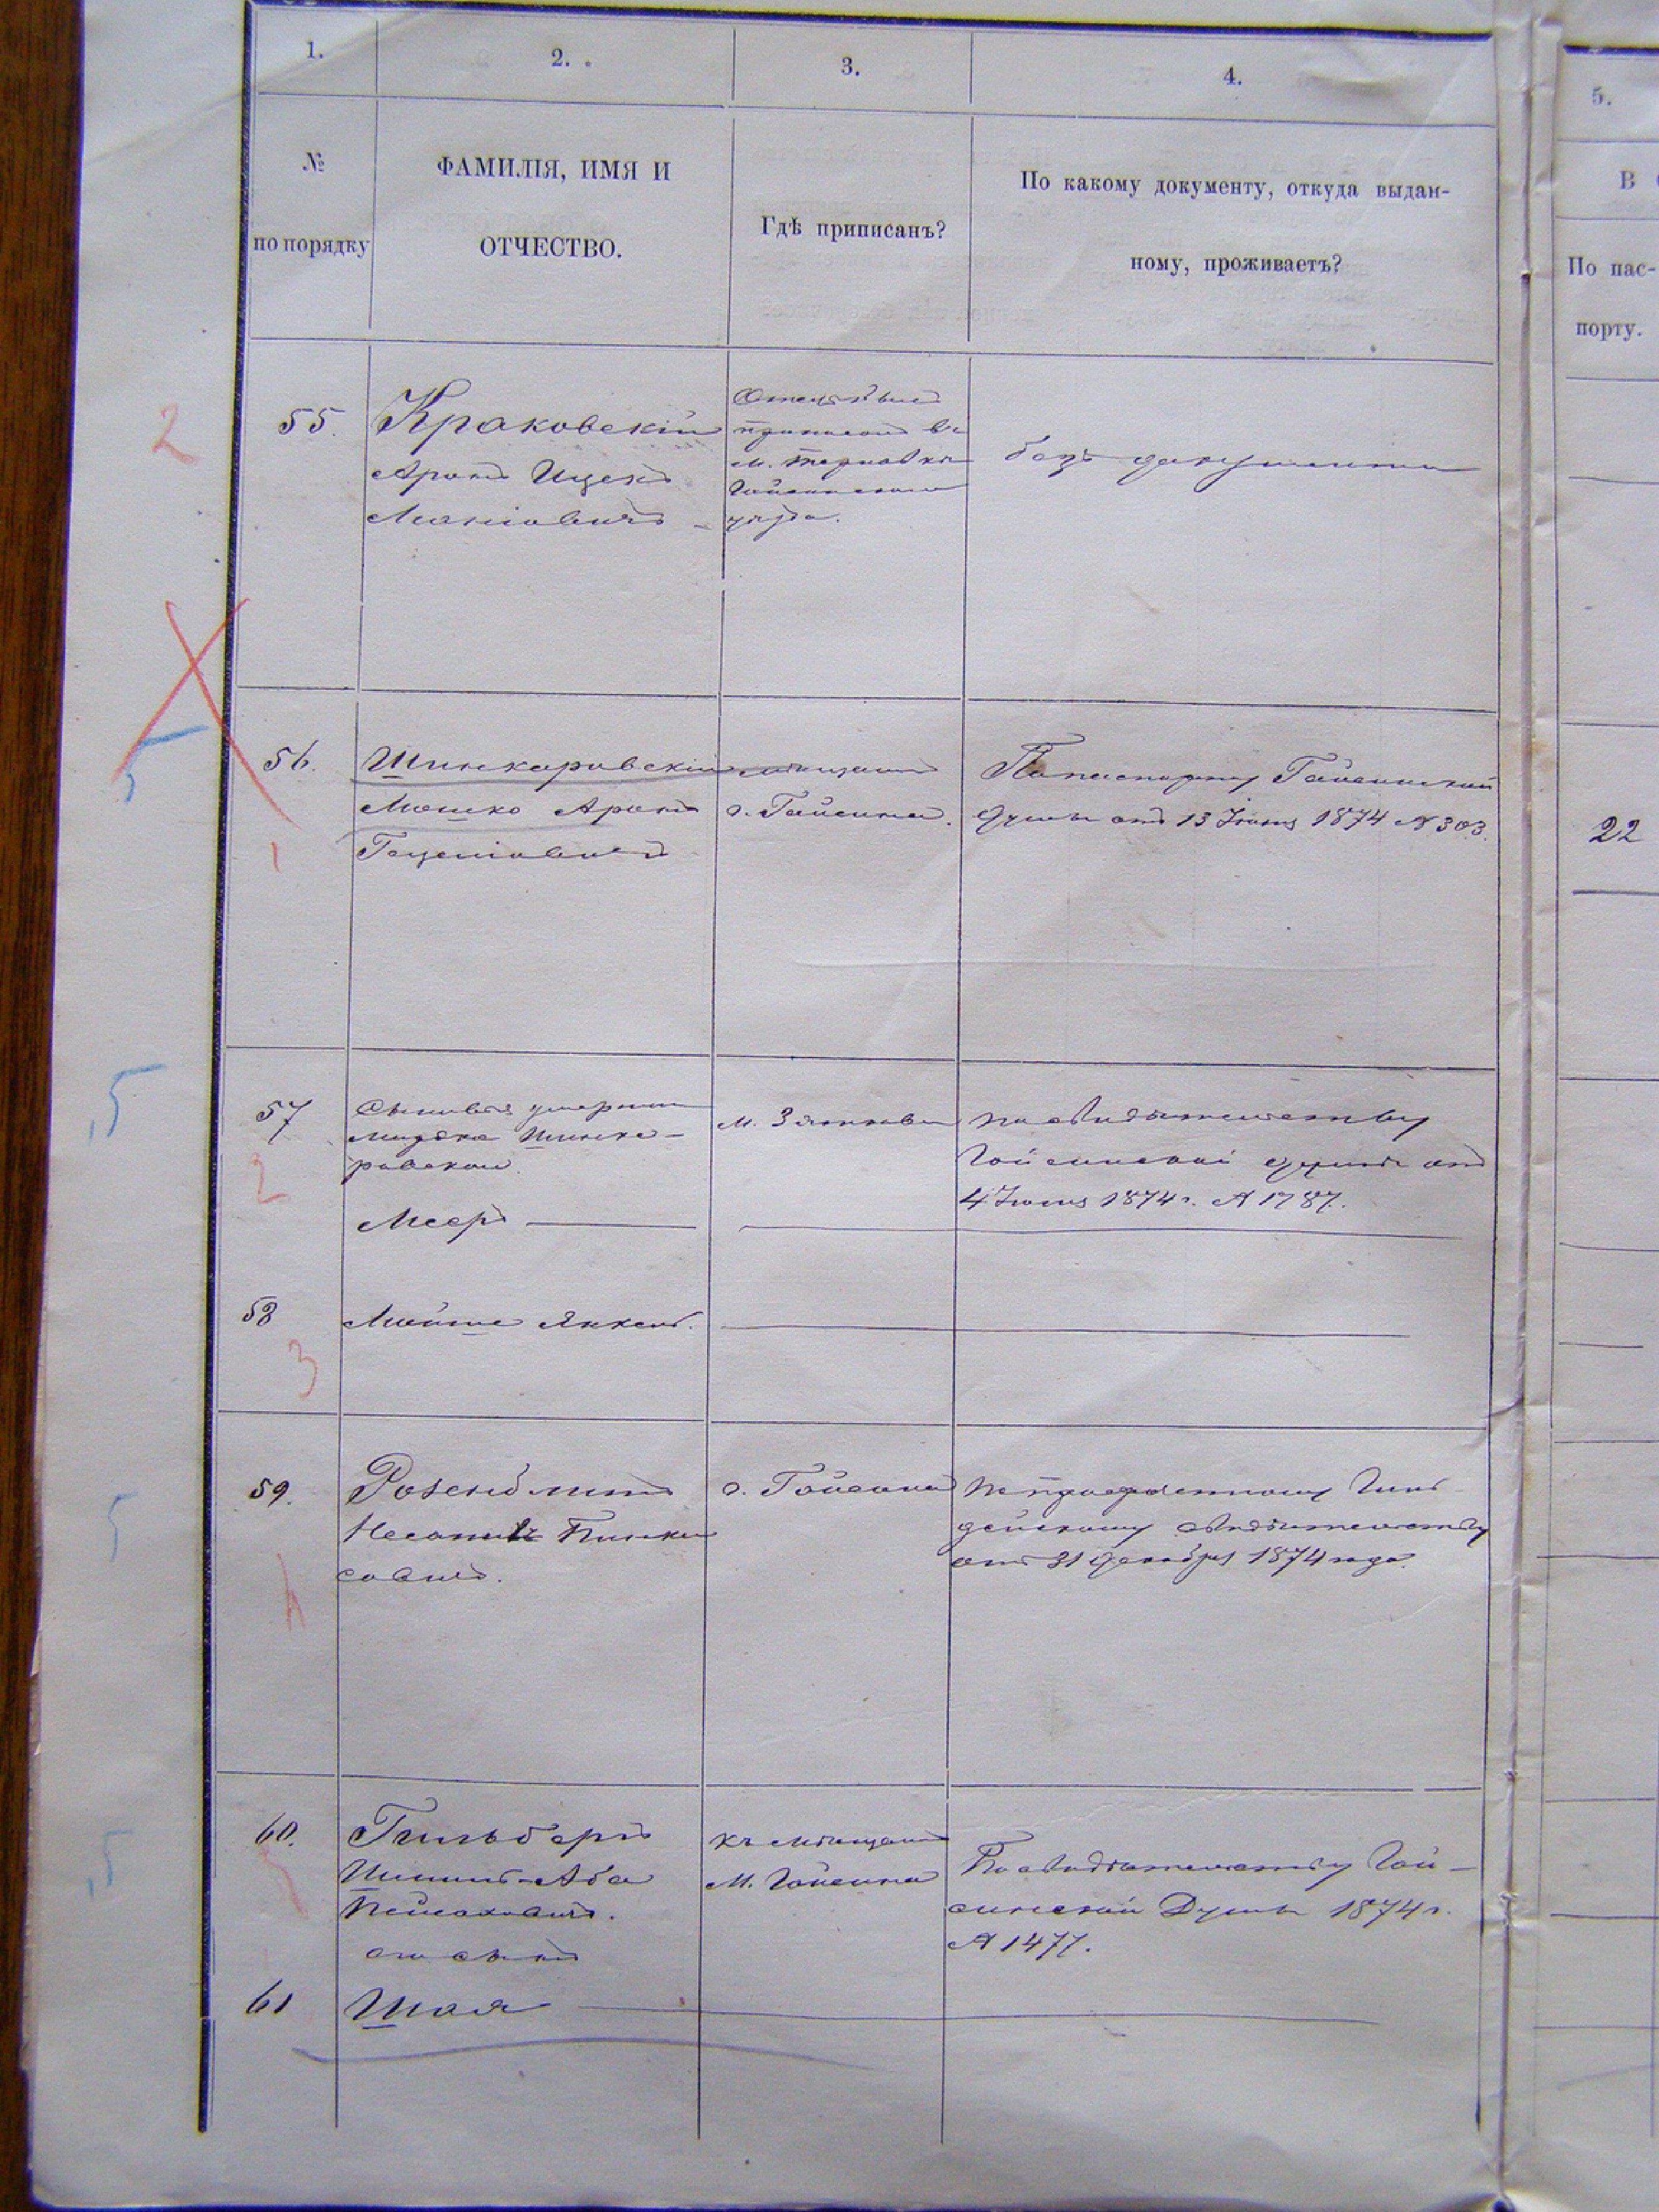 1.
2.
3.
4.
5.
№
по порядку
ФАМИЛІЯ, ИМЯ И
ОТЧЕСТВО.
Гдѣ приписанъ?
По какому документу, откуда выдан-
ному, проживаетъ?
В
По пас-
порту.
2
55.
Краковскій
Аронъ Ицекъ
Мошковичъ
приписанъ въ
м. Терновкѣ
Гайсинскаго
уѣзда.
безъ документа
5
56.
1
Шинкаровскій
Мошко Аронъ
мѣщанинъ
г. Гайсина.
По паспорту Гайсинской
Думы отъ 13 Іюня 1874 № 303.
22
5
57
2
Сыновья умершаго
Шинка-
ровскаго.
Мееръ
м. Зятковцы
по свидѣтельству
Гайсинской Думы отъ
4 Іюня 1874 г. № 1787.
58
3
Мойше Янкель.
5
59.
4
Розенблитъ
Пинка-
совичъ.
г. Гайсина
отъ 31 Декабря 1874 года.
свидѣтельству
5
60.
5
Гильбергъ
Шишль-Аба
Пейсаховичъ.
его сынъ
къ мѣщанамъ
м. Гайсина
По свидѣтельству Гай-
синской Думы 1874 г.
№ 1477.
61
Шая